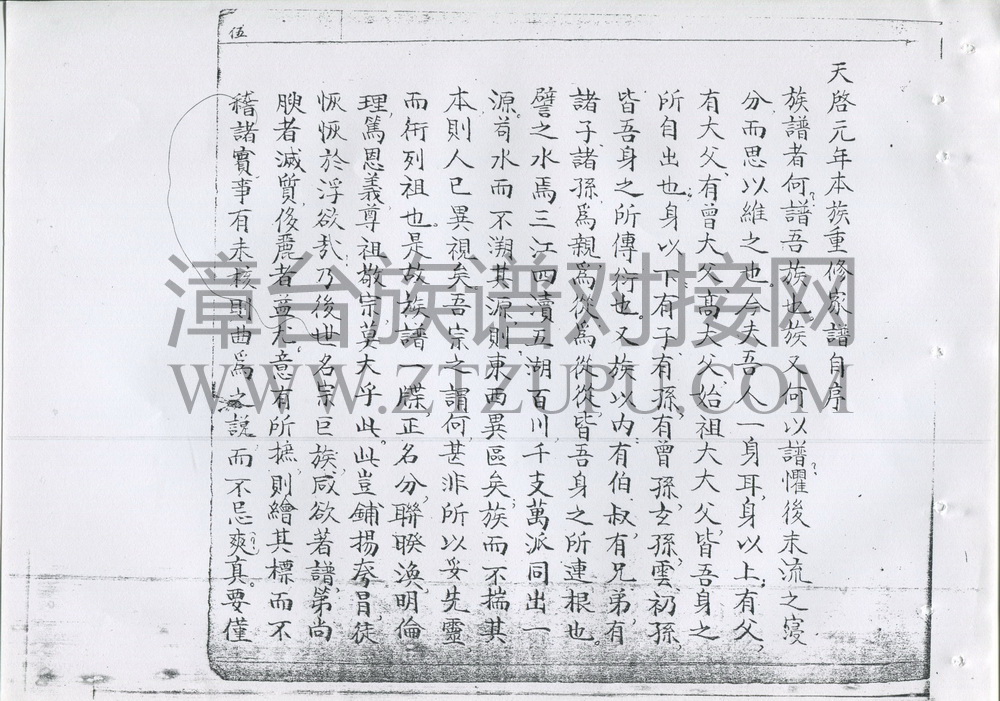 伍
天啓元年本族重修家譜自序
族譜者何?譜吾族也。族又何以譜?懼後末流之寖
分而思以維之也。今夫吾人一身耳,身以上;有父,
有大父、有曾大父、高大父、始祖大大父,皆吾身之
所自出也。身以下有子、有孫,有曾孫、玄孫、雲礽孫,
皆吾身之所傳衍也。又族以內有伯叔、有兄弟、有
諸子諸孫爲親爲從爲從從,皆吾身之所連根也。
譬之水焉三江四瀆五湖百川千支萬派同出一
源。苟水而不溯其源則東西異區矣。族而不揣其
本則人已異視矣。吾宗之謂何,甚非所以妥先靈
而衎列祖也。是故族譜一牒,正名分,聯暌渙,明倫
理,篤恩義,尊祖敬宗,莫大乎此。此豈鋪揚夸冒,徒
恢恢於浮欲㢤乃後世名宗巨族,咸欲著譜,第尚
腴者滅質,侈麗者益尤,意有所摭,則繪其標而不
稽諸實事有未核則曲爲之說而不忌爽真。要僅
漳台族谱对接网
WWW.ZTZUPU.COM